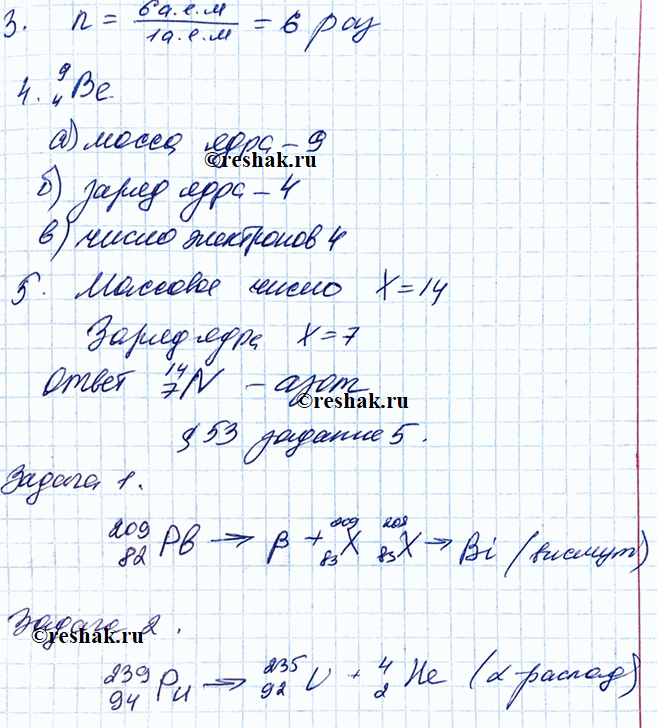 3. n = 6а.е.м / 1а.е.м = 6 раз
4. ⁹₄Be
а) масса ядра – 9
©reshak.ru
б) заряд ядра – 4
в) число электронов 4
5. Массовое число X = 14
Заряд ядра X = 7
Ответ ¹⁴₇N – азот
©reshak.ru
§ 53 задание 5.
Задача 1.
²⁰⁹₈₂Pb → β + ²⁰⁹₈₃X ²⁰⁹₈₃X → Bi (висмут)
Задача 2.
©reshak.ru
²³⁹₉₄Pu → ²³⁵₉₂U + ⁴₂He (α-распад)